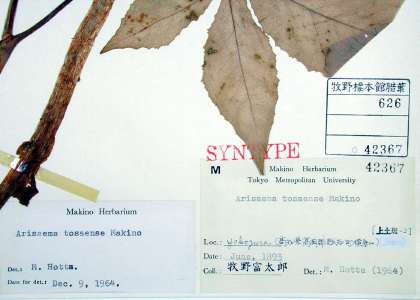 牧野標本館腊葉
626
42367
SYNTYPE
M Makino Herbarium 42367
Tokyo Metropolitan University
Arisaema tosaense Makino
Loc.:
Date: June, 1893
Coll.: 牧野富太郎 Det.: M. Hotta (1964)
Makino Herbarium
Arisaema tosaense Makino
Det.: M. Hotta.
Date for det.: Dec. 9, 1964.